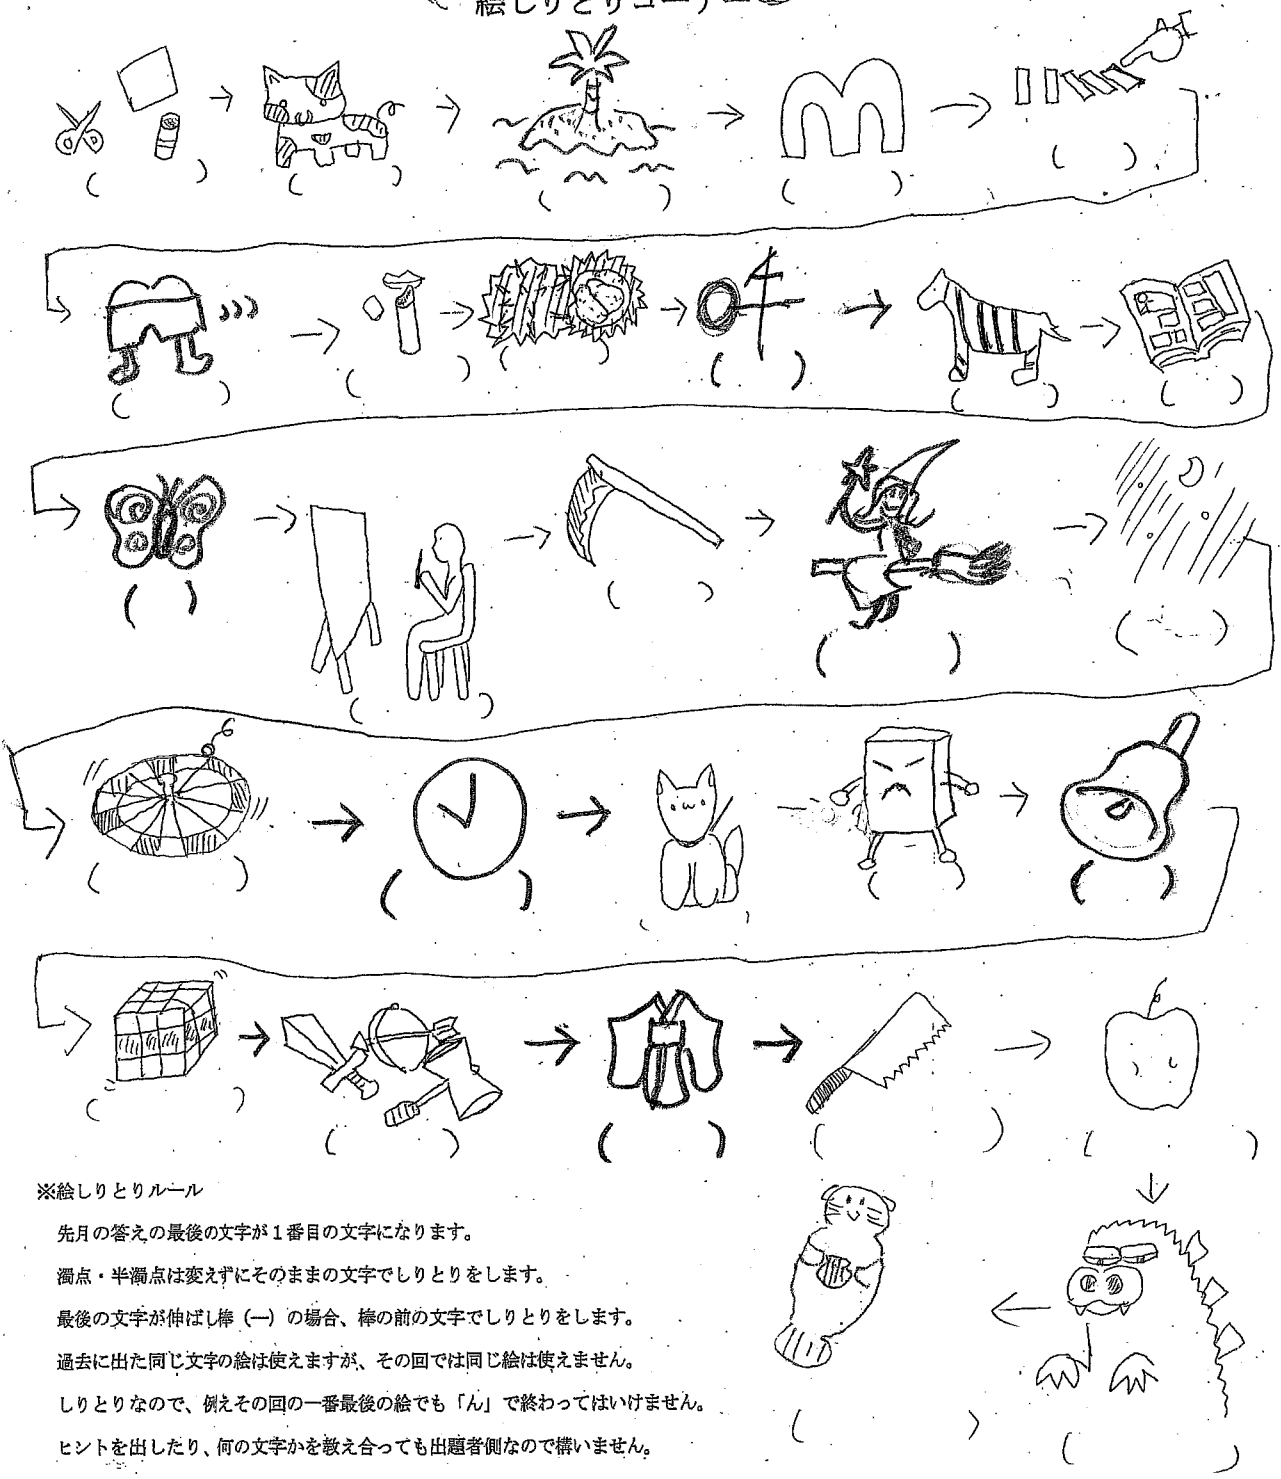 絵しりとりコーナー
※絵しりとりルール
先月の答えの最後の文字が１番目の文字になります。
濁点・半濁点は変えずにそのままの文字でしりとりをします。
最後の文字が伸ばし棒（ー）の場合、棒の前の文字でしりとりをします。
過去に出た同じ文字の絵は使えますが、その回では同じ絵は使えません。
しりとりなので、例えその回の一番最後の絵でも「ん」で終わってはいけません。
ヒントを出したり、何の文字かを教え合っても出題者側なので構いません。